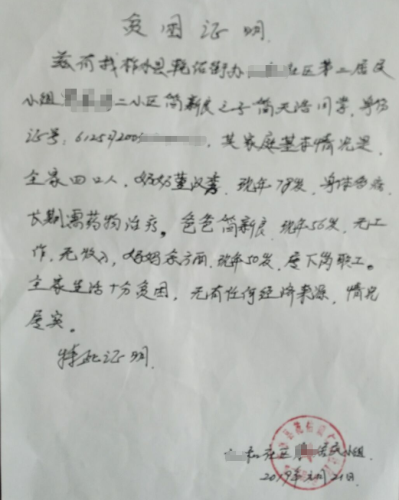 贫困证明
兹有我柞水县乾佑街办 社区第二居民
小组 二小区简新良之子简天浩同学,身份
证号:612527200 ,其家庭基本情况是
全家四口人,奶奶董汉秀,现年78岁,身体多病
长期需药物治疗。爸爸简新良,现年56岁,无工
作,无收入,妈妈余方丽,现年50岁,属下岗职工。
全家生活十分贫困,无有任何经济来源,情况
属实。
特此证明.
和社区 居民小组
2019年 月21日